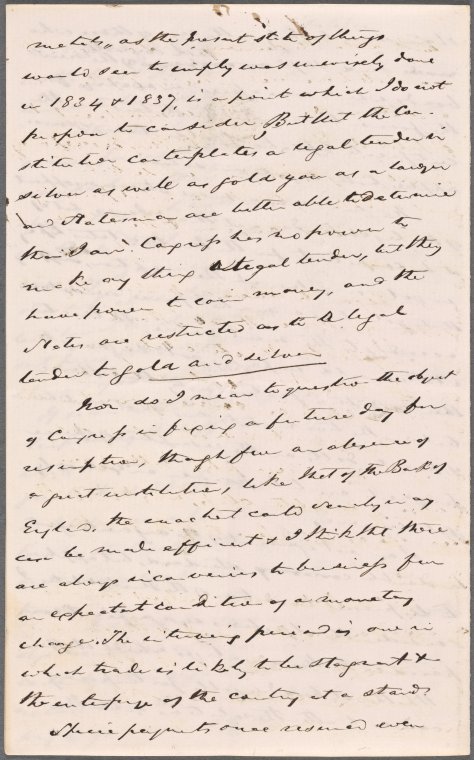 metals, as the present state of things
would seem to imply was unwisely done
in 1834 & 1837, is a point which I do not
propose to consider. But that the Con-
stitution contemplates a legal tender in
silver as well as gold you as a lawyer
and Statesman are better able to determine
than I am. Congress has no power to
make any thing a legal tender, but they
have power to coin money, and the
States are restricted as to a legal
tender to gold and silver
Nor do I mean to question the object
of Congress in fixing a future day for
resumption, though from an absence of
a great institution, like that of the Bank of
England, the enactment could scarcely in any
case be made efficient & I think that there
are always inconveniences to business from
an expected condition of a monetary
change. The intervening period is one in
which trade is likely to be stagnant &
the enterprise of the country at a stand.
Specie payments once resumed even